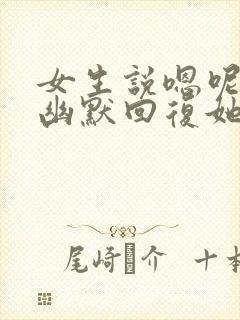 女生説嗯呢
幽默回復她
尾崎 介 十本